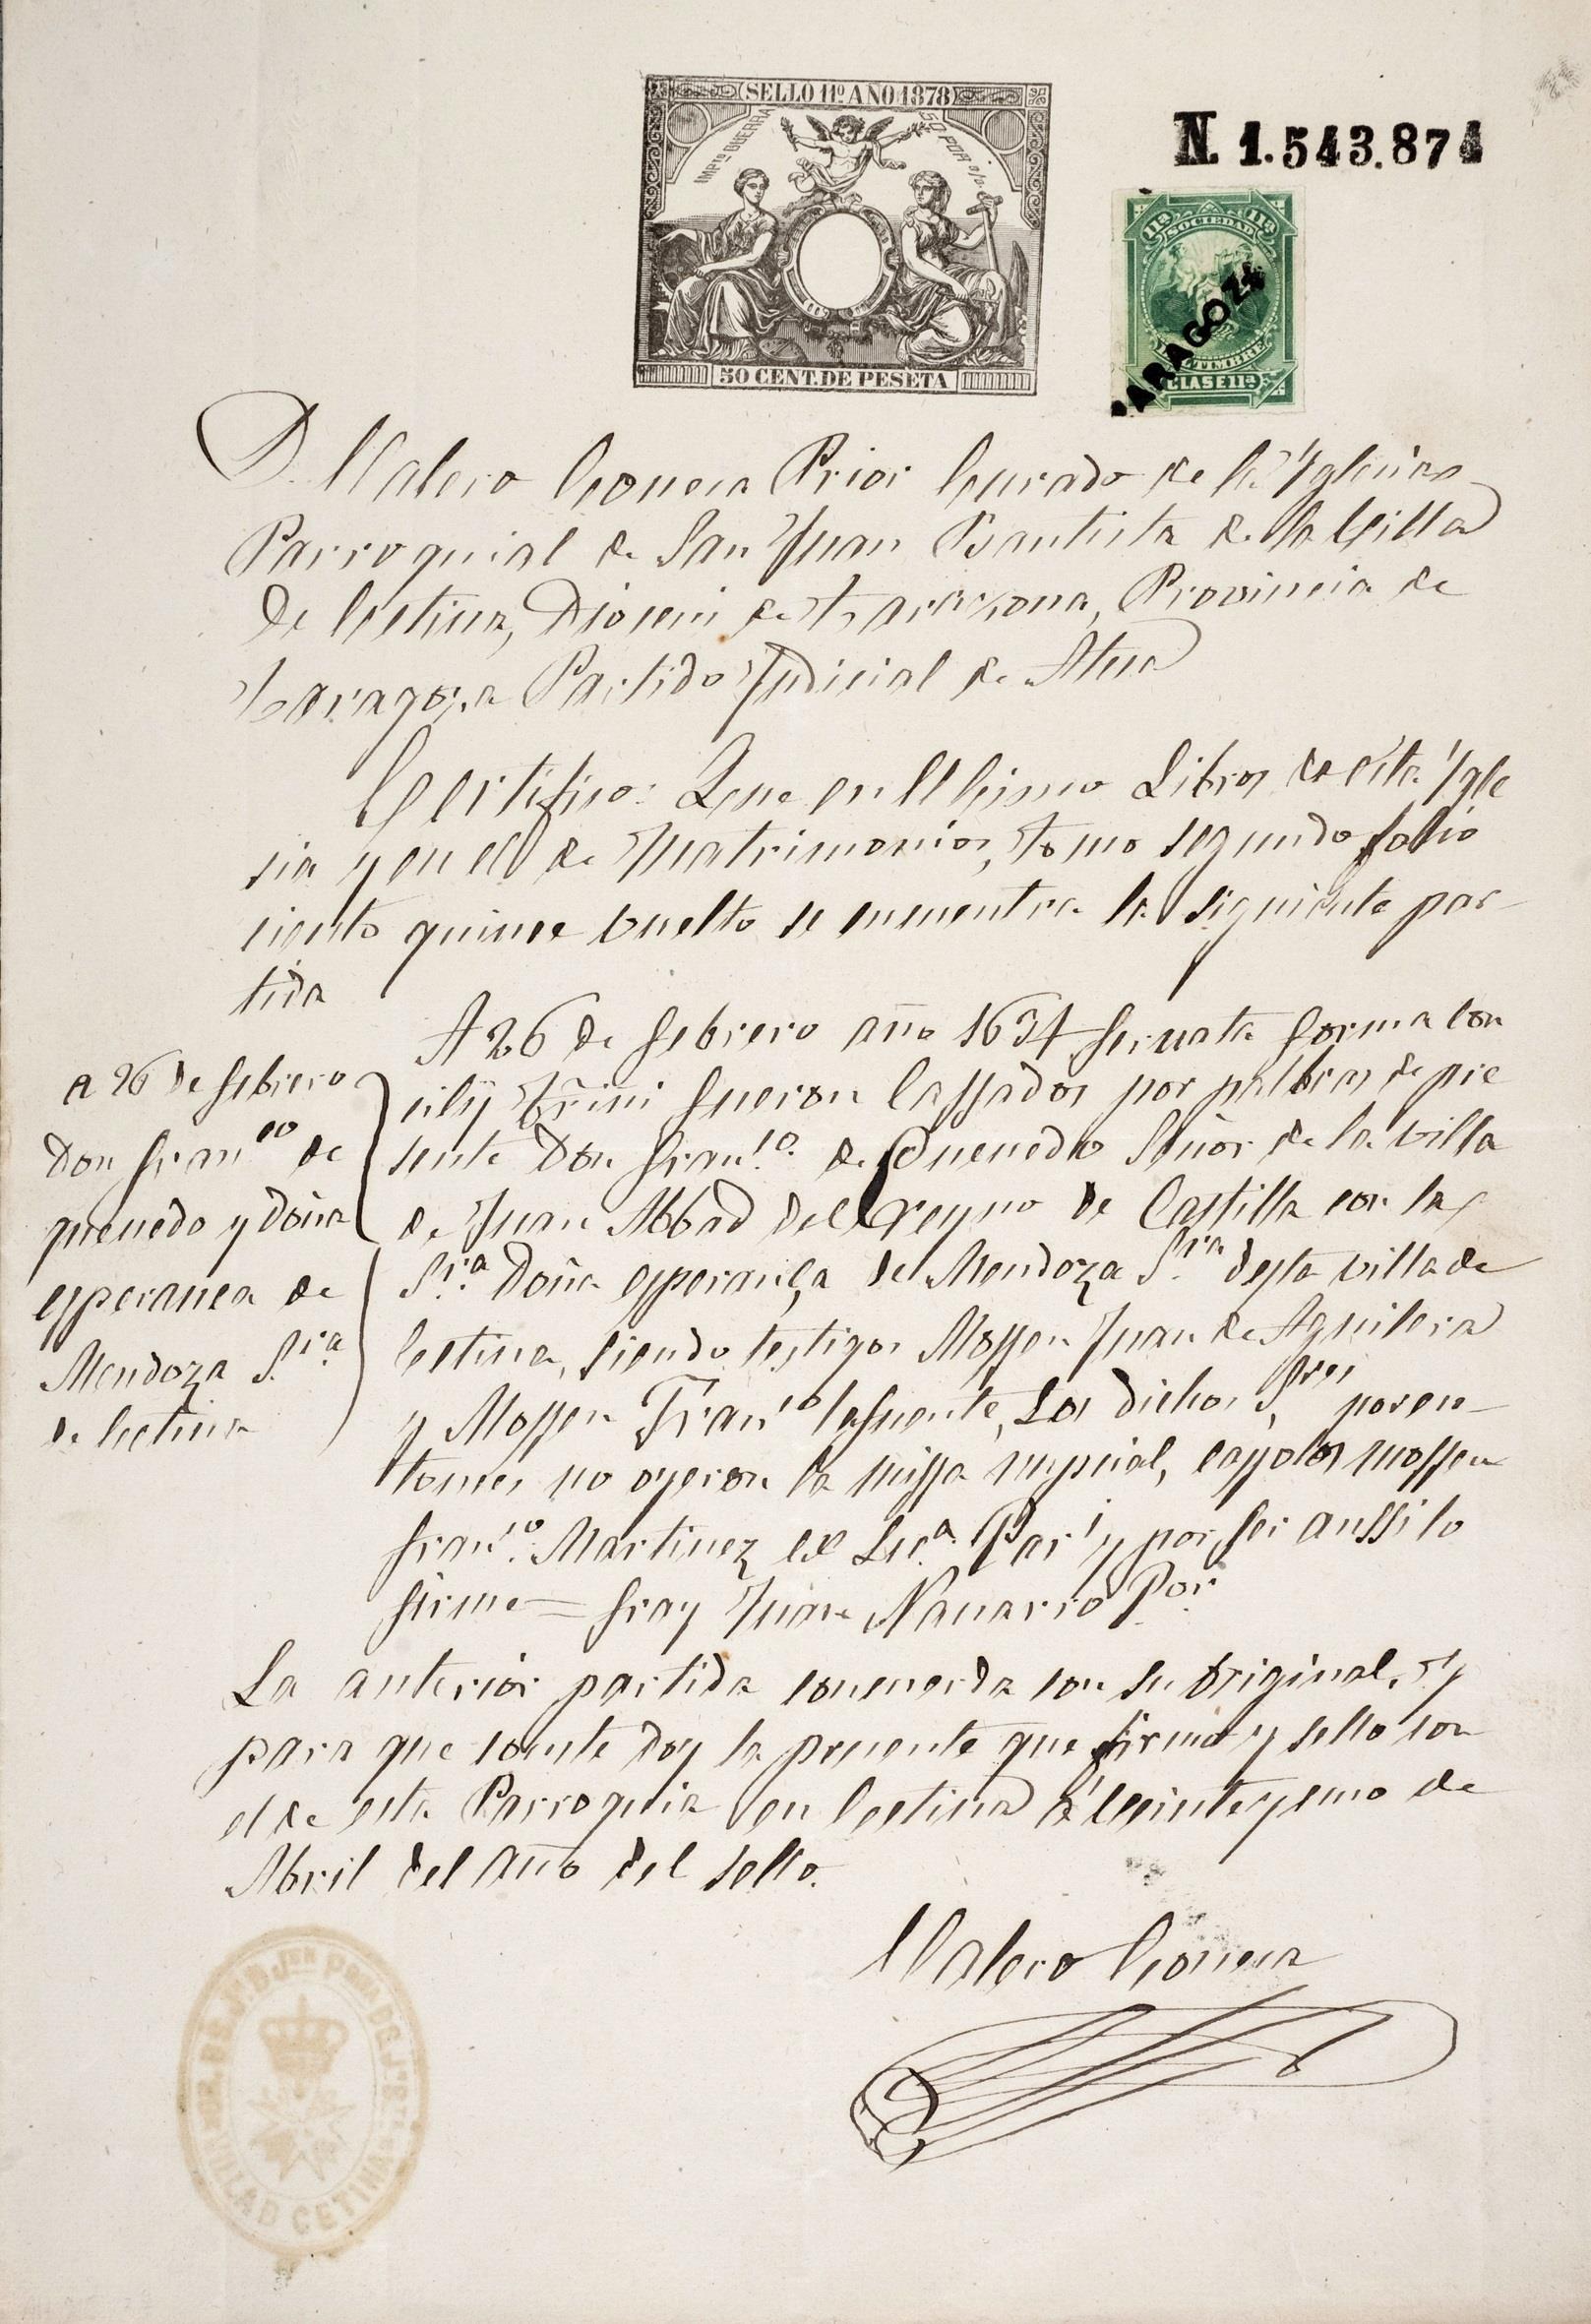 SELLO 11º AÑO 1878
IMPTO GUERRA 50 POR 0/0
50 CENT. DE PESETA
N. 1.543.874
11ª SOCIEDAD 11ª
TIMBRE
CLASE 11ª
ZARAGOZA
D. Valero Gonera Prior Curado de la Yglesia
Parroquial de San Juan Bautista de la Villa
de Cetina, Diocesis de Tarazona, Provincia de
Zaragoza Partido Judicial de Ateca
Certifico: Que en el Libros de esta Ygle
sia y en el de Matrimonios, tomo segundo folio
ciento quince vuelto se encuentra la siguiente par-
tida
a 26 de febrero
Don franco de
queuedo y doña
esperanca de
Mendoza S.ra
de Cetina
A 26 de febrero año 1634 seruata forma con
cilij fueron cassados por palabras de pre
sente Don Franco. de Queuedo Señor de la villa
de Juan Abbad del reyno de Castilla con la
S.ra Doña esperança de Mendoza S.ra desta villa de
Cetina, siendo testigos Mossen Juan de Aguilera
y Mossen Franco lafuente, Los dichos S.res por en-
tonces no oyeron la missa nupcial, cassolos mossen
franco. Martinez ex Lica. Par.l y por ser anssi lo
firme = fray Juan Nauarro P.or
La anterior partida concuerda con su original, y
para que conste doy la presente que firmo y sello con
el de esta Parroquia en Cetina á Veinteyuno de
Abril del año del sello.
Valero Gonera
CETINA